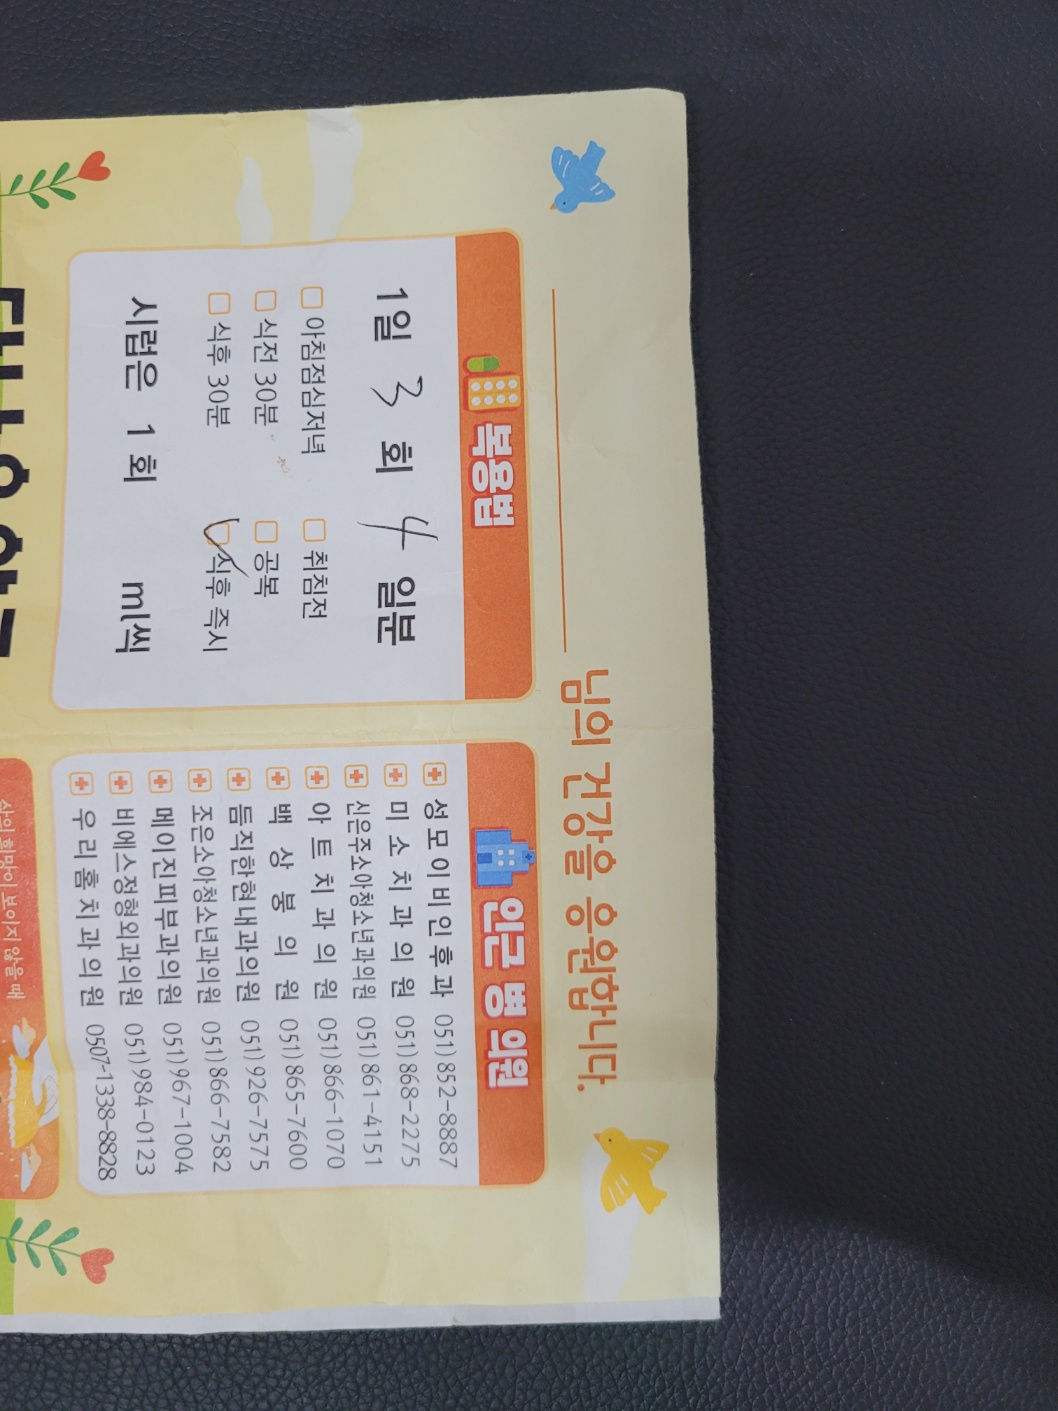 님의 건강을 응원합니다.
복용법
1일 3 회 4 일분
아침점심저녁 취침전
식전 30분 공복
식후 30분 식후 즉시
시럽은 1 회 ml씩
인근 병 의원
성모이비인후과 051)852-8887
미소치과의원 051)868-2275
신은주소아청소년과의원 051)861-4151
아트치과의원 051)866-1070
백상봉의원 051)865-7600
듬직한현내과의원 051)926-7575
조은소아청소년과의원 051)866-7582
메이진피부과의원 051)967-1004
비에스정형외과의원 051)984-0123
우리홈치과의원 0507-1338-8828
삶의 희망이 보이지 않을 때